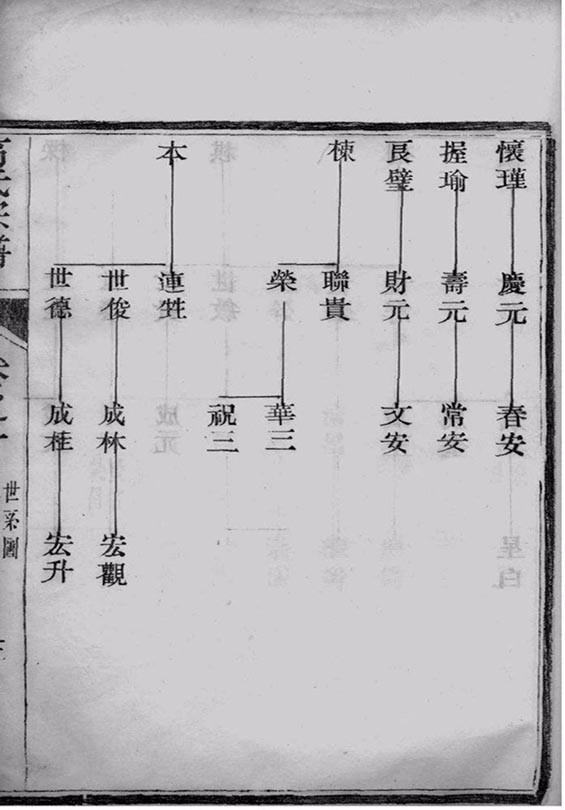 懷瑾
慶元
春安
握瑜
壽元
常安
長璧
財元
文安
棟
聯貴
榮
華三
祝三
本
連甡
世俊
成林
宏觀
世德
成桂
宏升
世系圖